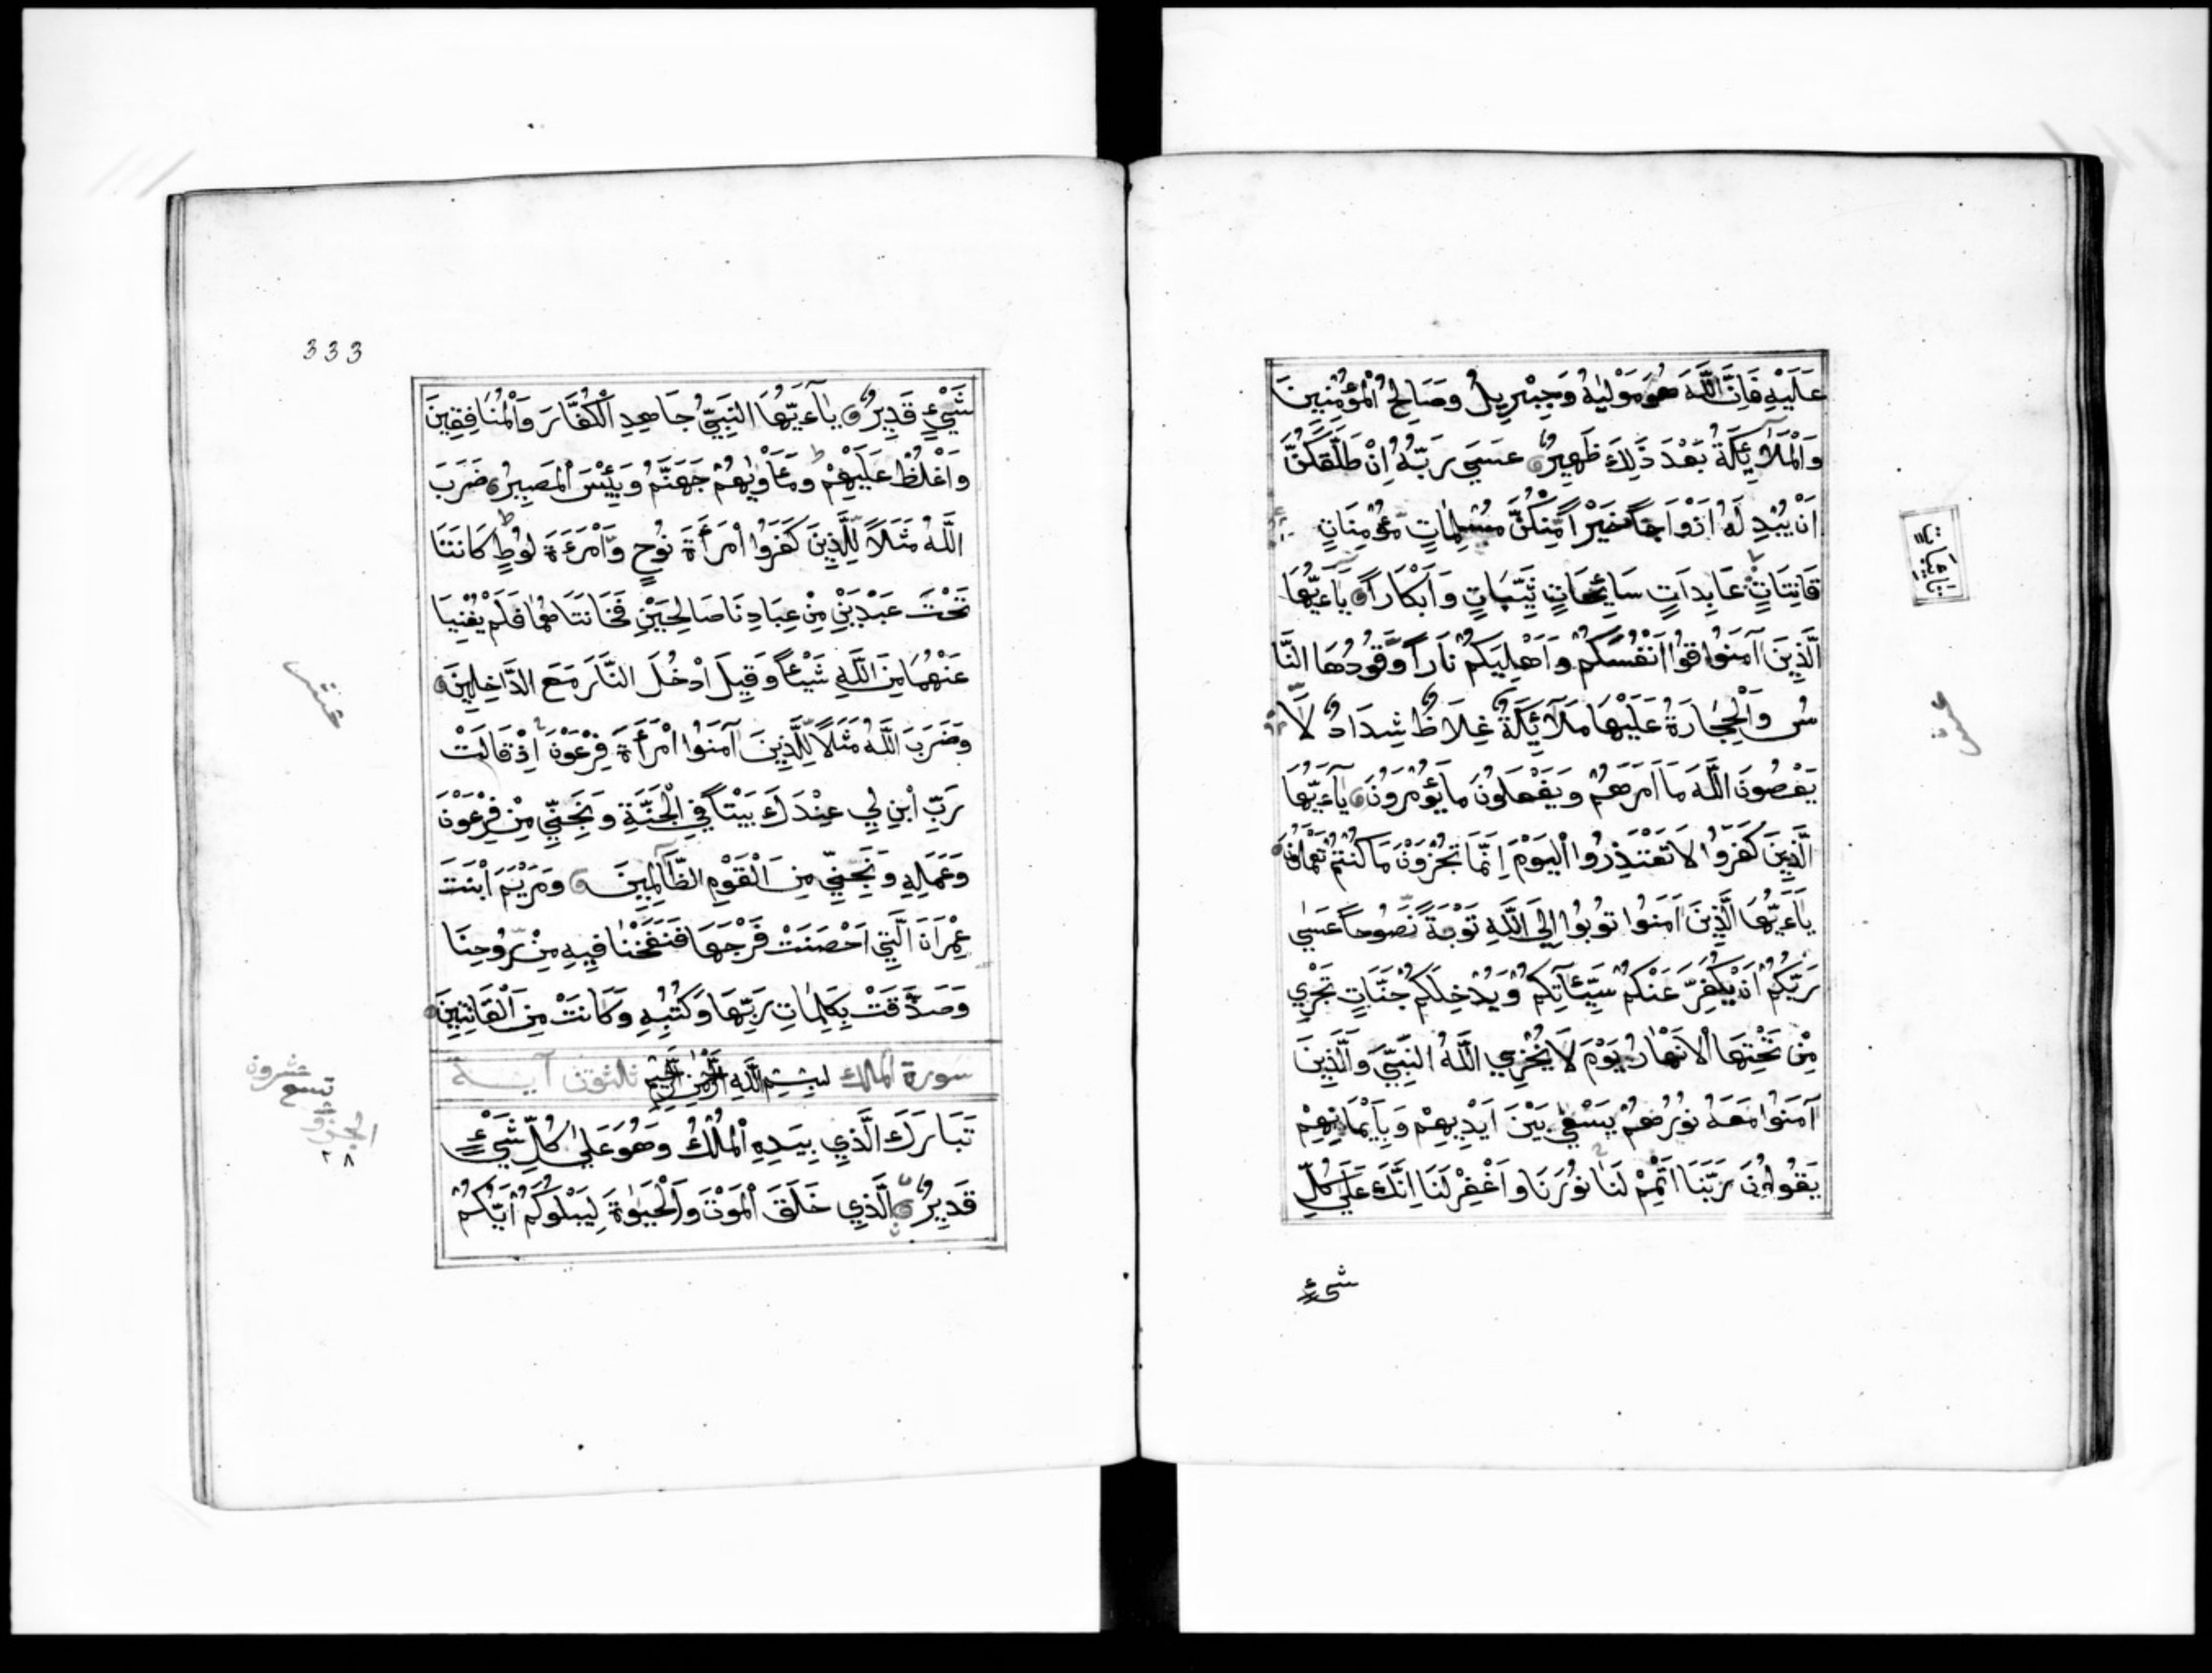 عَلَيْهِ فَاِنَّ اللَّهَ هُوَ مَوْلٰيهُ وَجِبْرِيلُ وَصَالِحُ الْمُؤْمِنِينَ
وَالْمَلَآئِكَةُ بَعْدَ ذَلِكَ ظَهِيرٌ عَسَي رَبُّهُ اِنْ طَلَّقَكُنَّ
اَنْ يُبْدِ لَهُ اَزْوَاجًا خَيْرًا مِّنْكُنَّ مُسْلِمَاتٍ مُّؤْمِنَاتٍ
قَانِتَاتٍ عَابِدَاتٍ سَائِحَاتٍ ثَيِّبَاتٍ وَاَبْكَارًا يَآءَيُّهَا
الَّذِينَ آمَنُوا قُوا اَنْفُسَكُمْ وَاَهْلِيكُمْ نَارًا وَّقُودُهَا النَّا
سُ وَالْحِجَارَةُ عَلَيْهَا مَلَآئِكَةٌ غِلَاظٌ شِدَادٌ لَّا
يَعْصُونَ اللَّهَ مَا اَمَرَهُمْ وَيَفْعَلُونَ مَا يُؤْمَرُونَ يَآءَيُّهَا
الَّذِينَ كَفَرُوا لَا تَعْتَذِرُوا الْيَوْمَ اِنَّمَا تُجْزَوْنَ مَا كُنْتُمْ تَعْمَلُونَ
يَآءَيُّهَا الَّذِينَ آمَنُوا تُوبُوا اِلَي اللَّهِ تَوْبَةً نَّصُوحًا عَسٰي
رَبُّكُمْ اَنْ يُّكَفِّرَ عَنْكُمْ سَيِّئَاتِكُمْ وَيُدْخِلَكُمْ جَنَّاتٍ تَجْرِي
مِنْ تَحْتِهَا الْاَنْهَارُ يَوْمَ لَا يُخْزِي اللَّهُ النَّبِيَّ وَالَّذِينَ
آمَنُوا مَعَهُ نُورُهُمْ يَسْعٰي بَيْنَ اَيْدِيهِمْ وَبِاَيْمَانِهِمْ
يَقُولُونَ رَبَّنَا اَتْمِمْ لَنَا نُورَنَا وَاغْفِرْ لَنَا اِنَّكَ عَلَي كُلِّ
شيءٍ
333
شَيْءٍ قَدِيرٌ يَآءَيُّهَا النَّبِيُّ جَاهِدِ الْكُفَّارَ وَالْمُنَافِقِينَ
وَاغْلُظْ عَلَيْهِمْ وَمَاْوٰيهُمْ جَهَنَّمُ وَبِئْسَ الْمَصِيرُ ضَرَبَ
اللَّهُ مَثَلًا لِّلَّذِينَ كَفَرُوا امْرَاَةَ نُوحٍ وَّامْرَءَةَ لُوطٍ كَانَتَا
تَحْتَ عَبْدَيْنِ مِنْ عِبَادِنَا صَالِحَيْنِ فَخَانَتَاهُمَا فَلَمْ يُغْنِيَا
عَنْهُمَا مِنَ اللَّهِ شَيْئًا وَقِيلَ ادْخُلَ النَّارَ مَعَ الدَّاخِلِينَ
وَضَرَبَ اللَّهُ مَثَلًا لِّلَّذِينَ آمَنُوا امْرَاَةَ فِرْعَوْنَ اِذْ قَالَتْ
رَبِّ ابْنِ لِي عِنْدَكَ بَيْتًا فِي الْجَنَّةِ وَنَجِّنِي مِنْ فِرْعَوْنَ
وَعَمَلِهِ وَنَجِّنِي مِنَ الْقَوْمِ الظَّالِمِينَ وَمَرْيَمَ ابْنَتَ
عِمْرَانَ الَّتِي اَحْصَنَتْ فَرْجَهَا فَنَفَخْنَا فِيهِ مِنْ رُّوحِنَا
وَصَدَّقَتْ بِكَلِمَاتِ رَبِّهَا وَكُتُبِهِ وَكَانَتْ مِنَ الْقَانِتِينَ
سورة الملك بِسْمِ اللَّهِ الرَّحْمٰنِ الرَّحِيمِ ثلثون آية
تَبَارَكَ الَّذِي بِيَدِهِ الْمُلْكُ وَهُوَ عَلٰي كُلِّ شَيْءٍ
قَدِيرٌ الَّذِي خَلَقَ الْمَوْتَ وَالْحَيٰوةَ لِيَبْلُوَكُمْ اَيُّكُمْ
عشر
الجزو
تسع
عشرون
٢٨